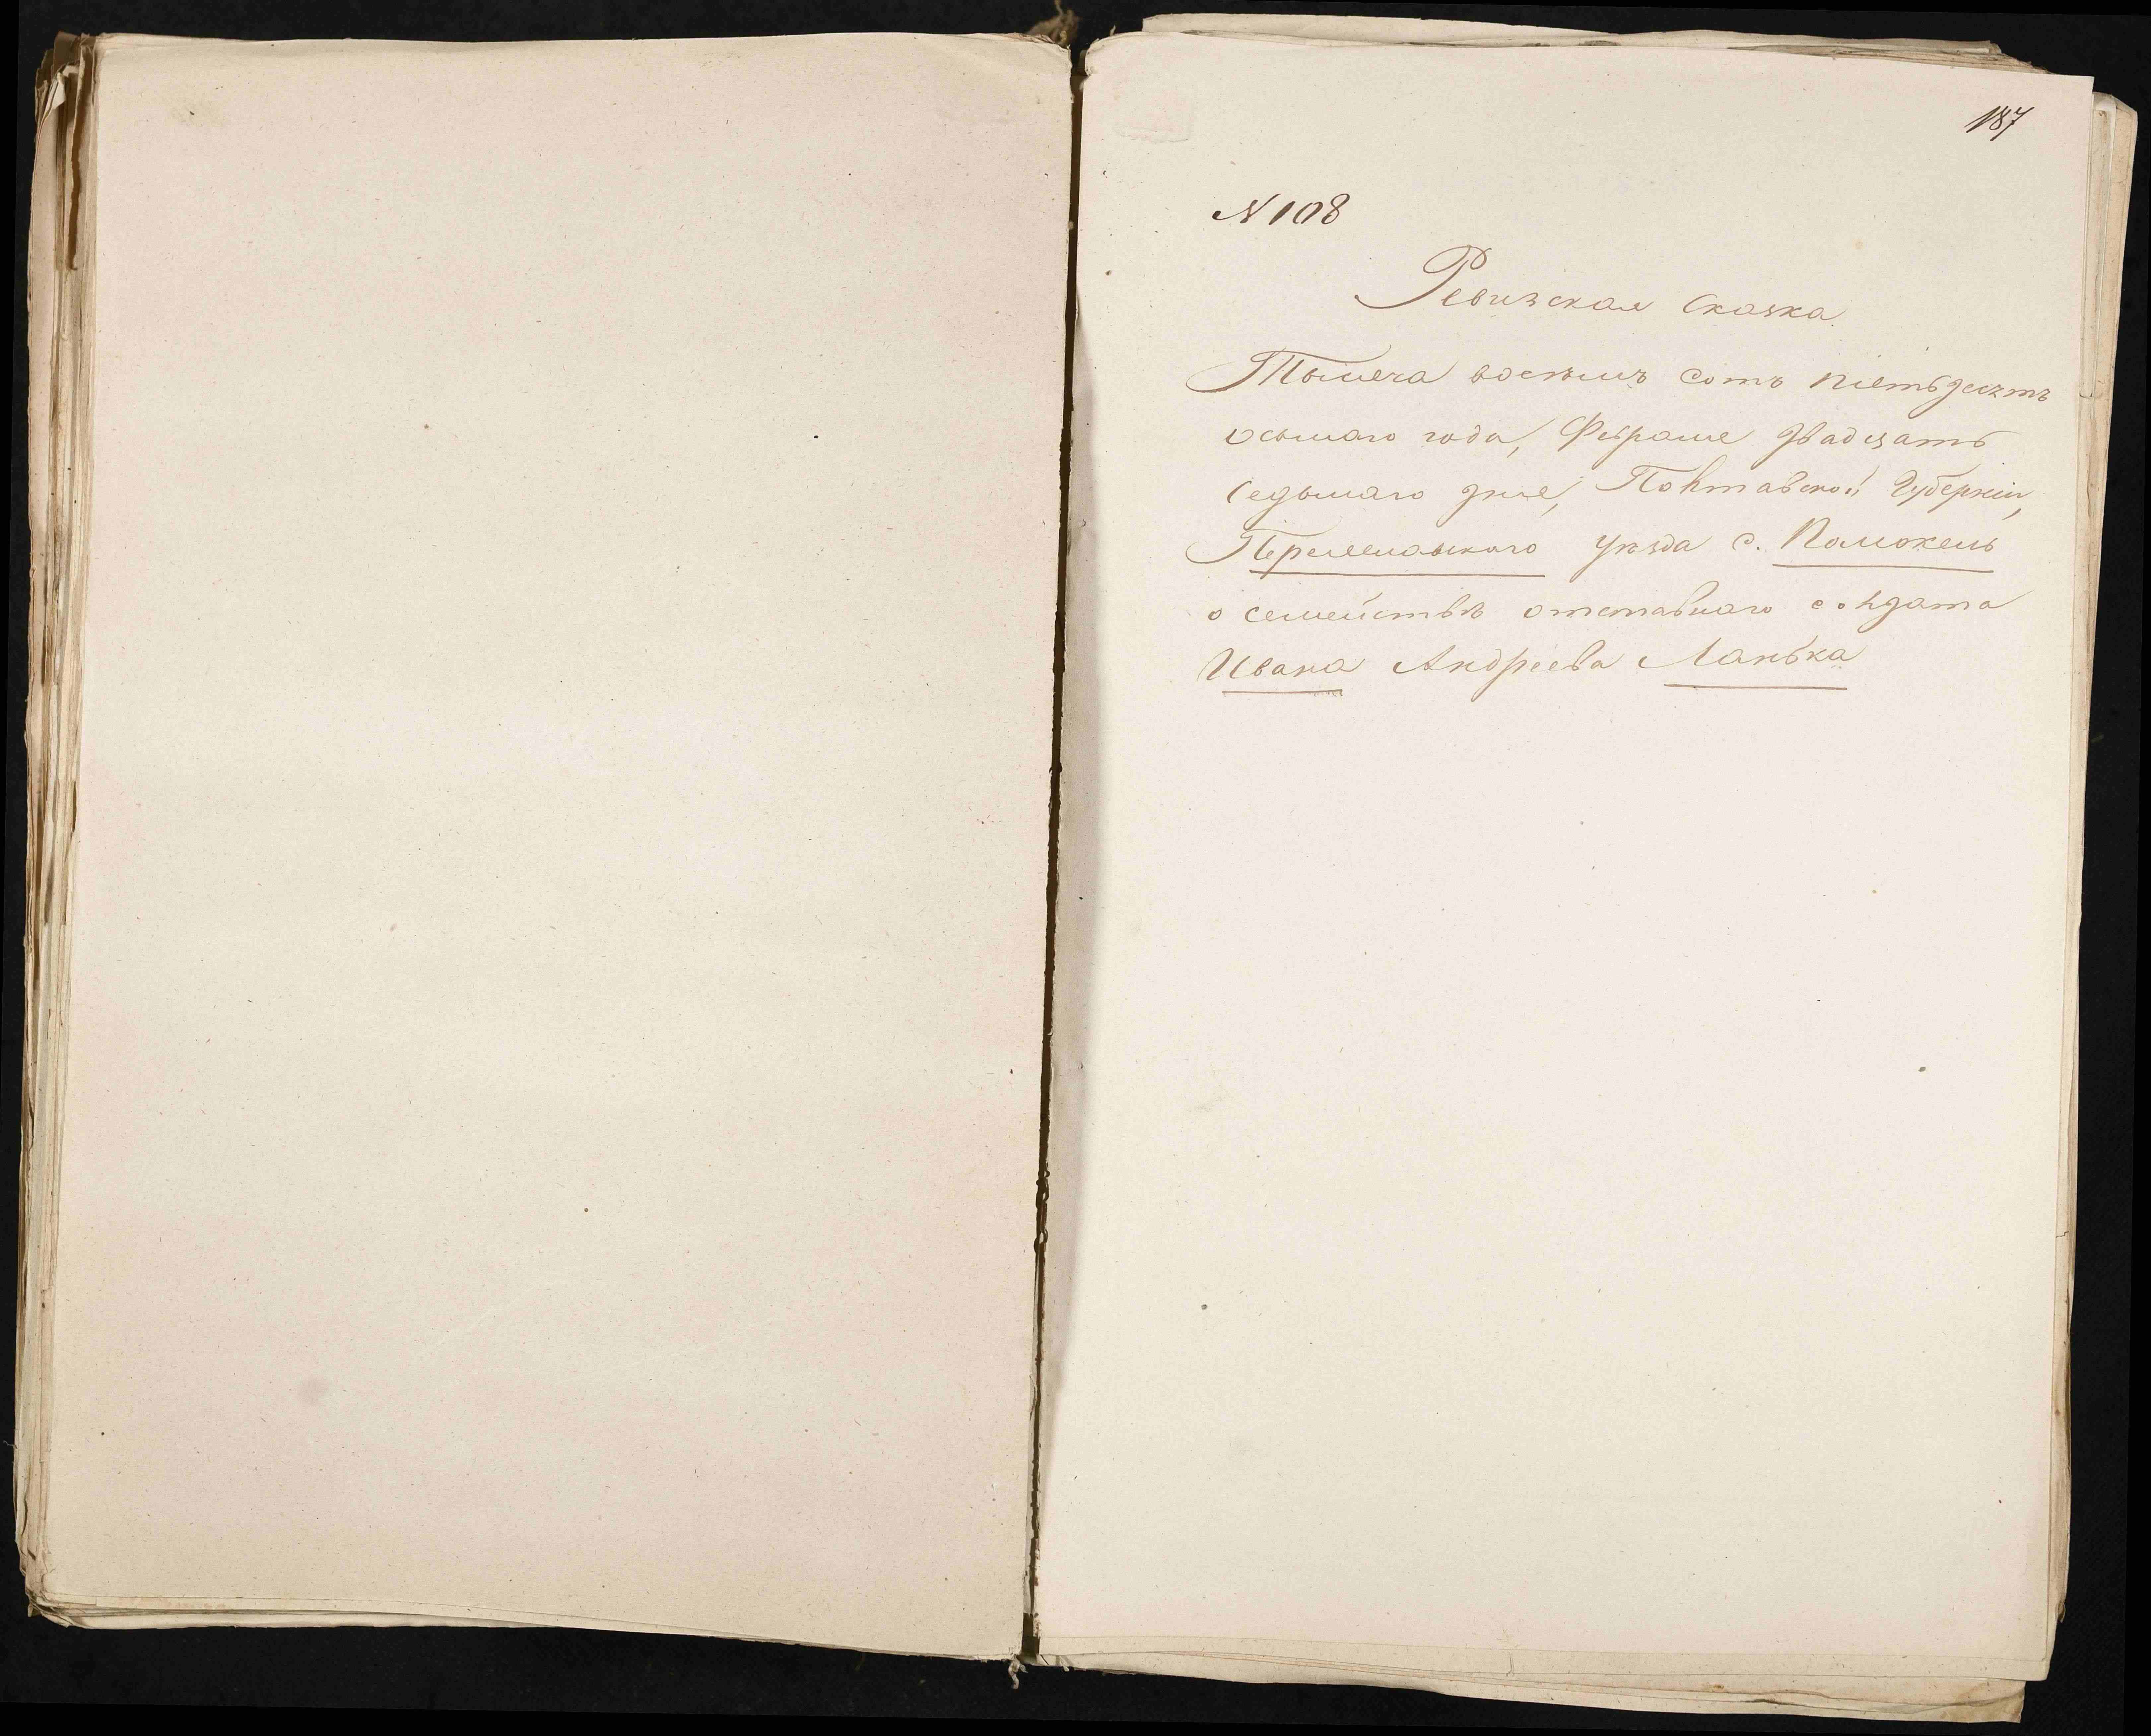 187
N 108
Ревизская Сказка
Тысяча восѣмъ сотъ пятьдесятъ
осьмаго года, Февраля двадцать
седьмаго дня, Полтавской Губерніи,
Переяславского уѣзда с. Помокель
о семействѣ отставнаго солдата
Ивана Андреева Ланька